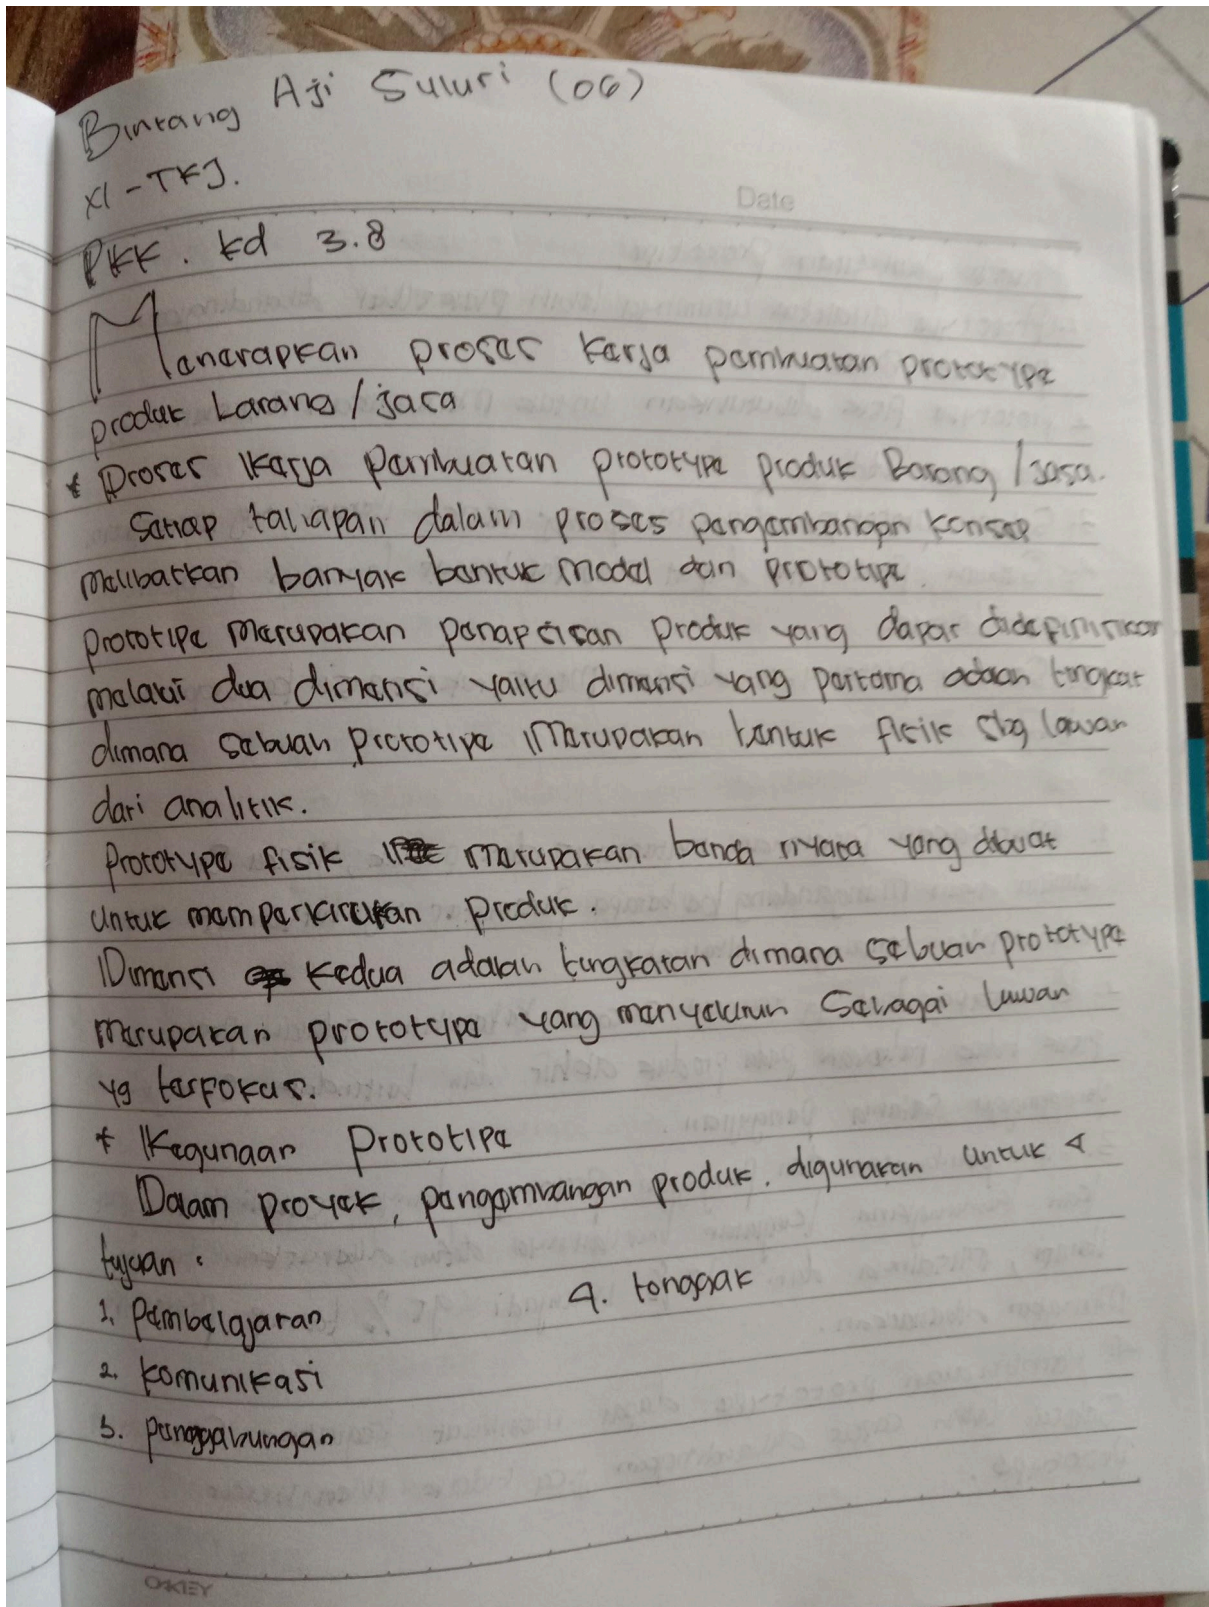 Bintang Aji Suluri (06)
XI - TKJ.
Date
PKK. kd 3.8
Menerapkan proses kerja pembuatan prototype
produk barang / jasa
* Proses kerja pembuatan prototype produk Barang / jasa.
Setiap tahapan dalam proses pengembangan konsep
melibatkan banyak bentuk model dan prototipe.
prototipe merupakan penapsisan produk yang dapat didefinisikan
melalui dua dimensi yaitu dimensi yang pertama adalah tingkat
dimana sebuah prototipe merupakan bentuk fisik sbg lawan
dari analitik.
Prototype fisik merupakan benda nyata yang dibuat
untuk memperkirakan produk.
Dimensi kedua adalah tingkatan dimana sebuah prototype
merupakan prototype yang menyeluruh sebagai lawan
yg terfokus.
* Kegunaan Prototipe
Dalam proyek, pengembangan produk. digunakan untuk 4
tujuan :
1. Pembelajaran 4. tonggak
2. komunikasi
3. penggabungan
OKEY